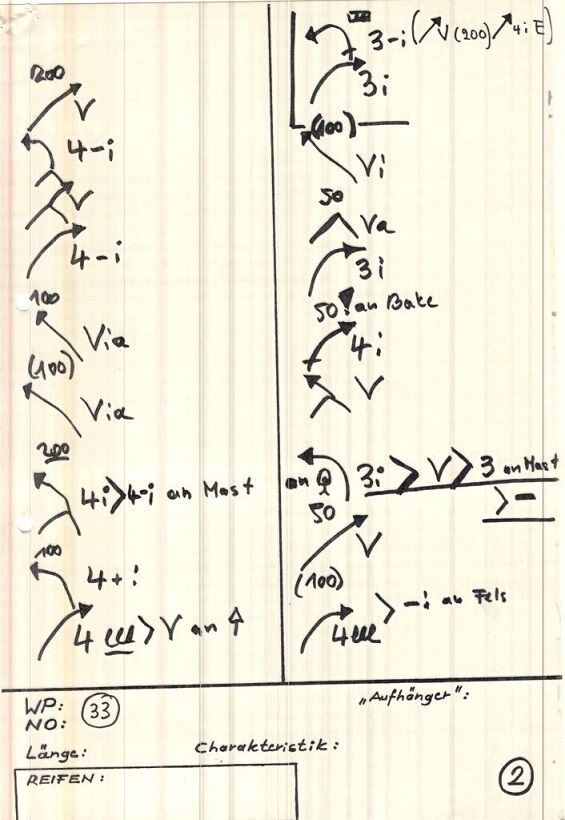 200
V
4-i
V
4-i
100
Via
(100)
Via
200
4i>4-i an Mast
100
4+i
4 > V an
3-i ( V (200) 4i E)
3i
(100)
Vi
50
Va
3i
50 ! an Bake
4i
V
an 3i > V > 3 an Mast
50 > -
V
(100)
> -i an Fels
4
WP: 33
NO:
„Aufhänger“:
Länge: Charakteristik:
REIFEN:
2